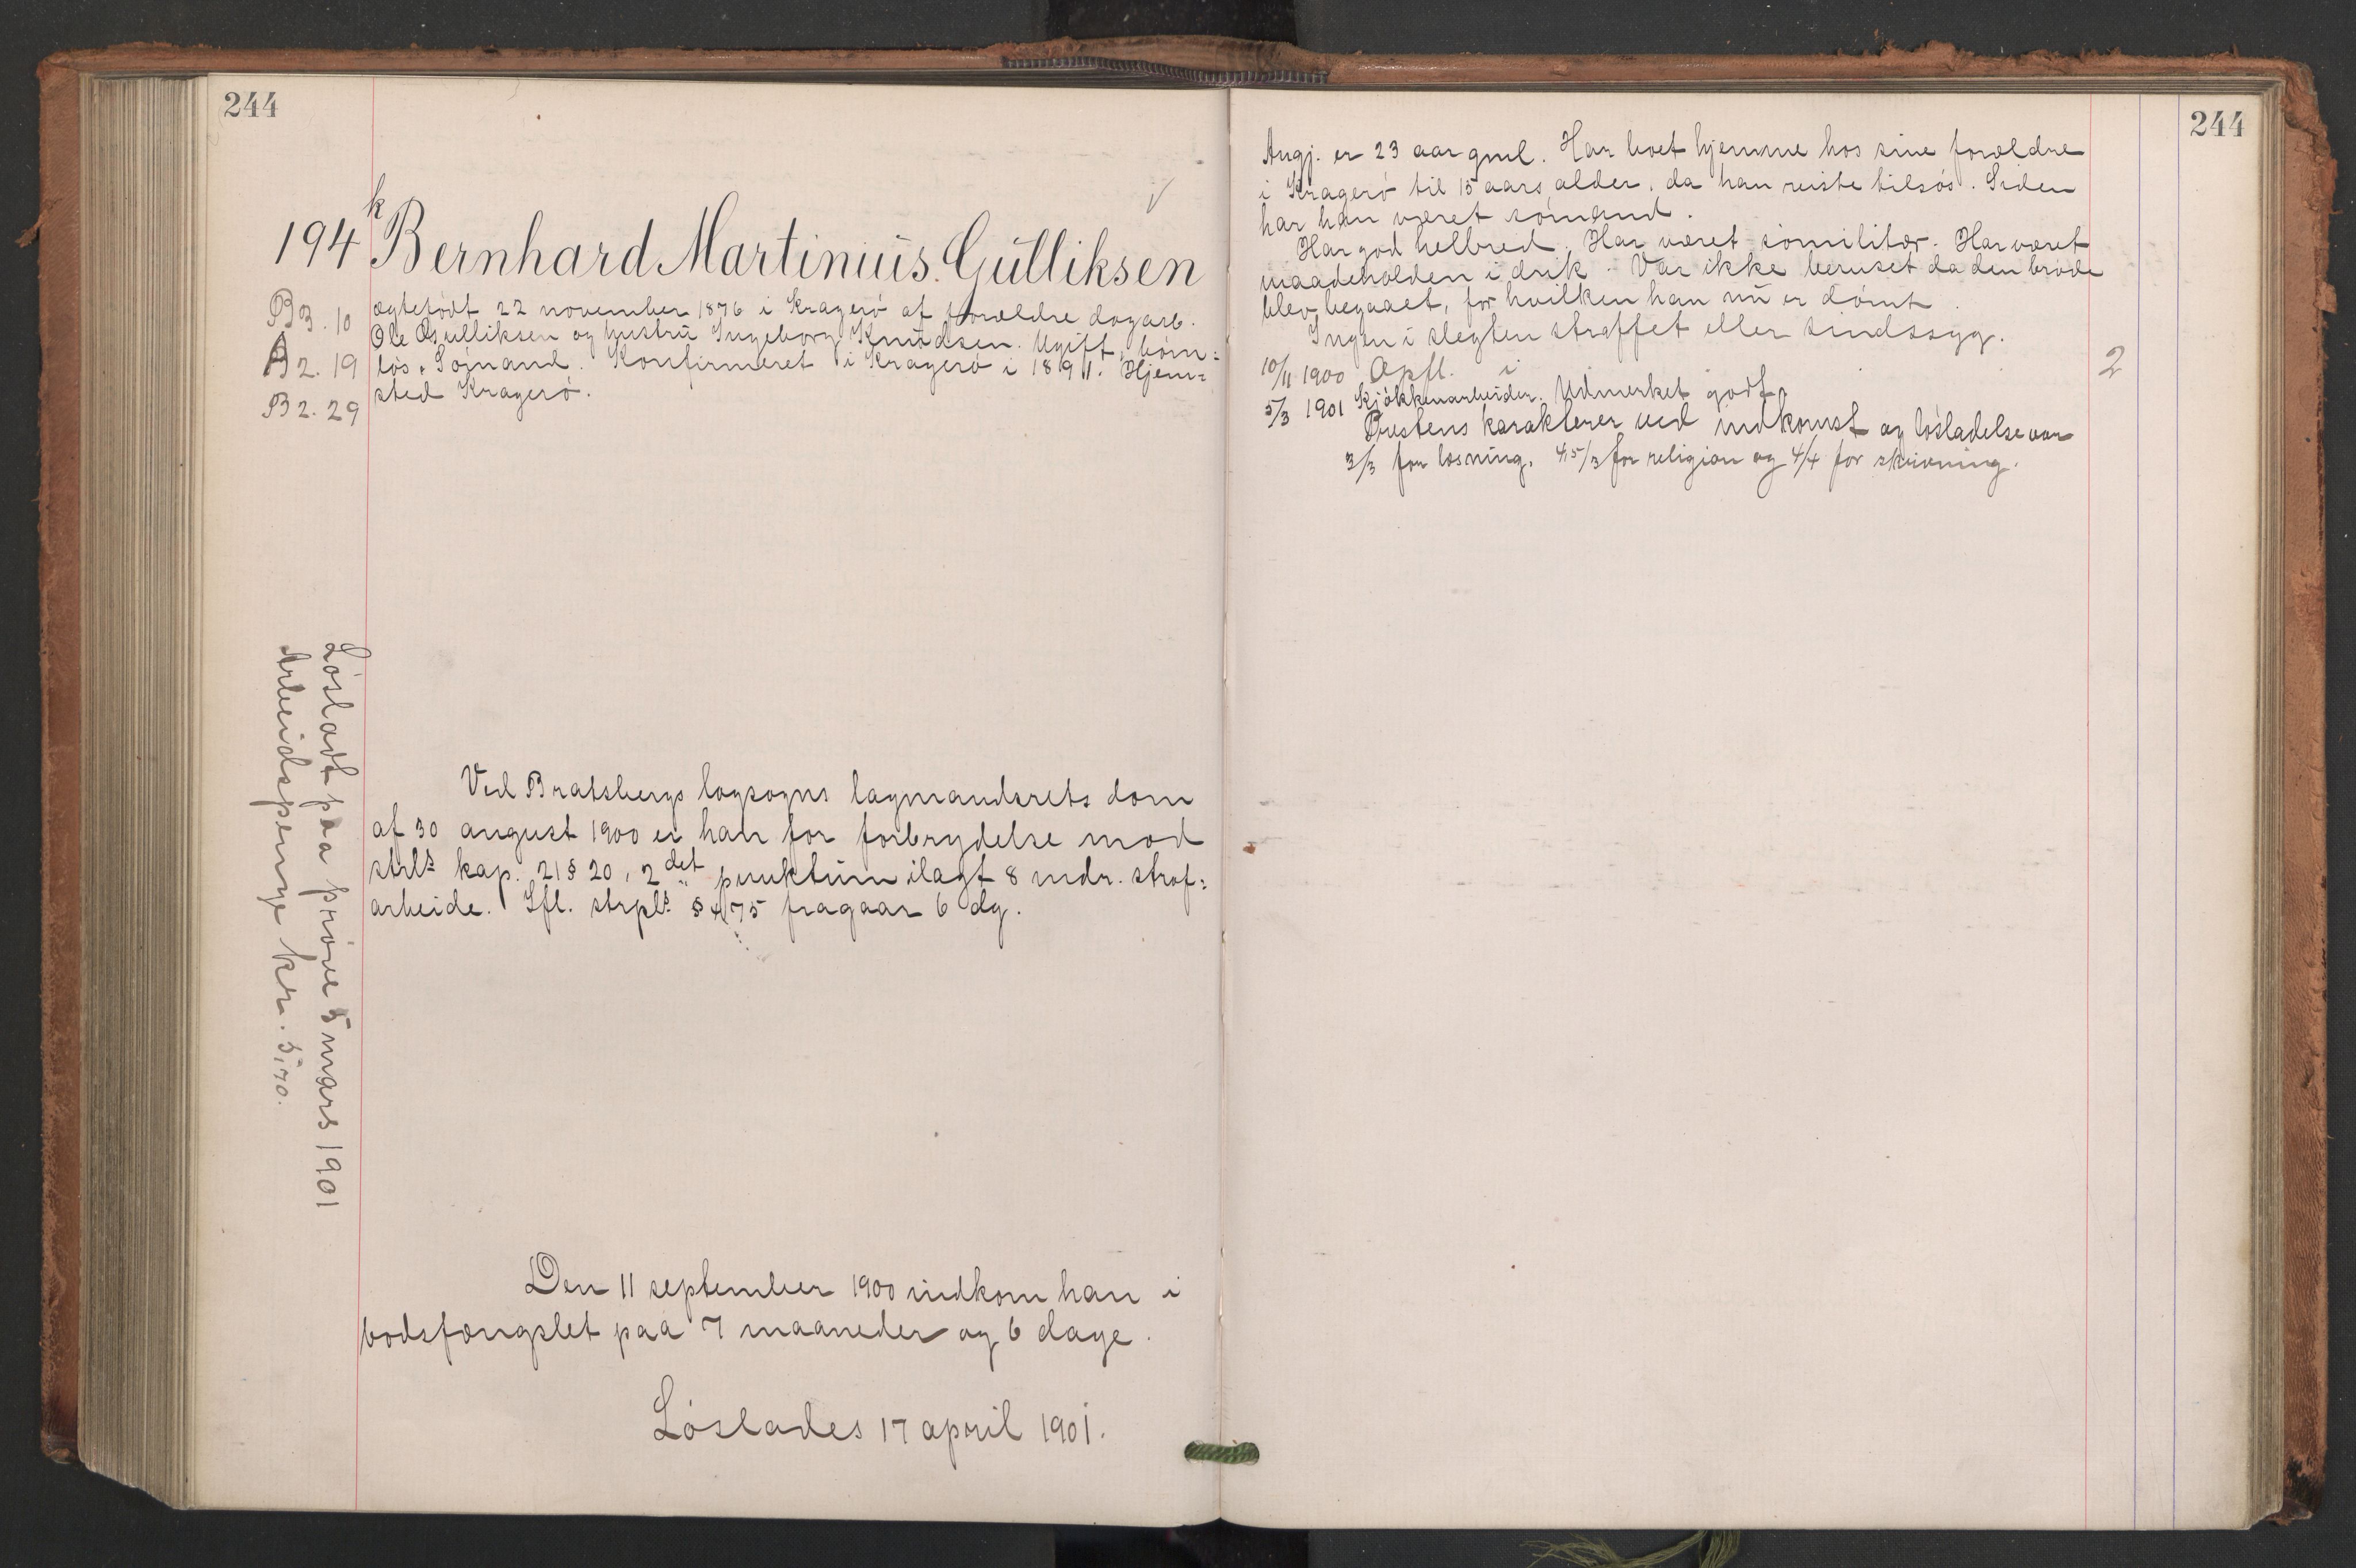 244
k
194 Bernhard Martinius Gulliksen
B 3. 10
A 2. 19
B 2. 29
ægtefødt 22 november 1876 i Kragerö af forældre dagarb.
Ole Gulliksen og hustru Ingeborg Knudsen. Ugift, börn-
lös. Sömand. Konfirmeret i Kragerö i 1891. Hjem-
sted Kragerö.
Lösladt paa pröve 5 mars 1901
Arbeidspenge kr. 5,70.
Ved Bratsbergs lagsogns lagmandsrets dom
af 30 august 1900 er han for forbrydelse mod
strls kap. 21 § 20, 2det punktum ilagt 8 mdr. straf-
arbeide. Ifl. strpls § 475 fragaar 6 dg.
Den 11 september 1900 indkom han i
bodsfængslet paa 7 maaneder og 6 dage.
Löslades 17 april 1901.
244
Angj. er 23 aar gml. Har boet hjemme hos sine forældre
i Kragerö til 15 aars alder, da han reiste tilsös. Siden
har han været sömand.
Har god helbred. Har været sömilitær. Har været
maadeholden i drik. Var ikke beruset da den bröde
blev begaaet, for hvilken han nu er dömt.
Ingen i slegten straffet eller sindssyg.
10/11 1900 Opfl. i
2
5/3 1901 Kjökkenarbeider. Udmerket godt.
Prestens karakterer ved indkomst og lösladelse var
3/3 for læsning, 4,5/3 for religion og 4/4 for skrivning.